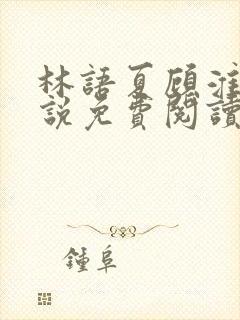 林語夏顧淮
說免費閱讀
鍾阜